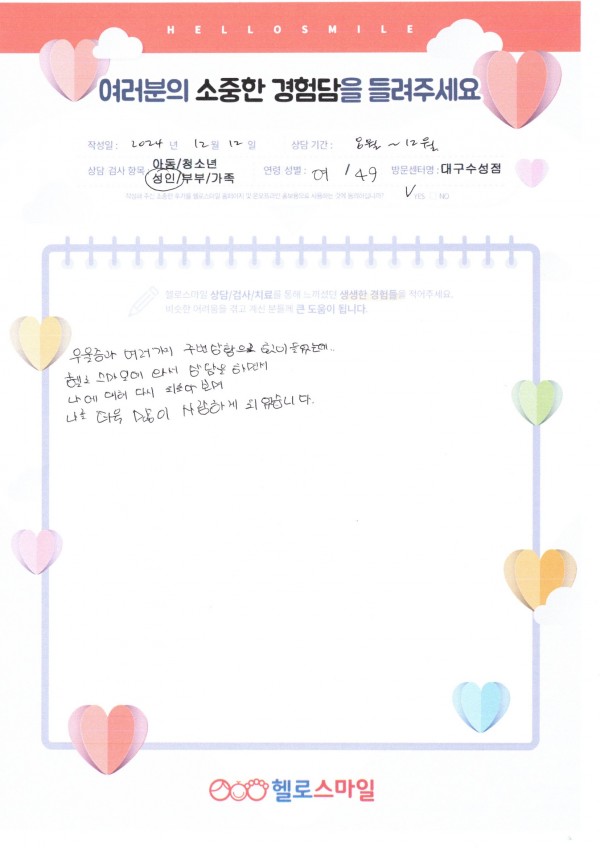 HELLOSMILE
여러분의 소중한 경험담을 들려주세요
작성일 : 2024 년 12 월 12 일 상담 기간 : 8월 ~ 12월
상담 검사 항목 : 아동/청소년 성인/부부/가족 연령 성별 : 여 / 49 방문센터명 : 대구수성점
작성해 주신 소중한 수기를 헬로스마일 홈페이지 및 온오프라인 홍보용으로 사용하는 것에 동의하십니까? V YES □ NO
헬로스마일 상담/검사/치료를 통해 느끼셨던 생생한 경험들을 적어주세요.
비슷한 어려움을 겪고 계신 분들께 큰 도움이 됩니다.
우울증과 여러가지 주변상황으로 힘이들었는데..
헬로 스마일에 와서 상담을 하면서
나에 대해 다시 되돌아 보며
나를 더욱 사랑하게 되었습니다.
헬로스마일